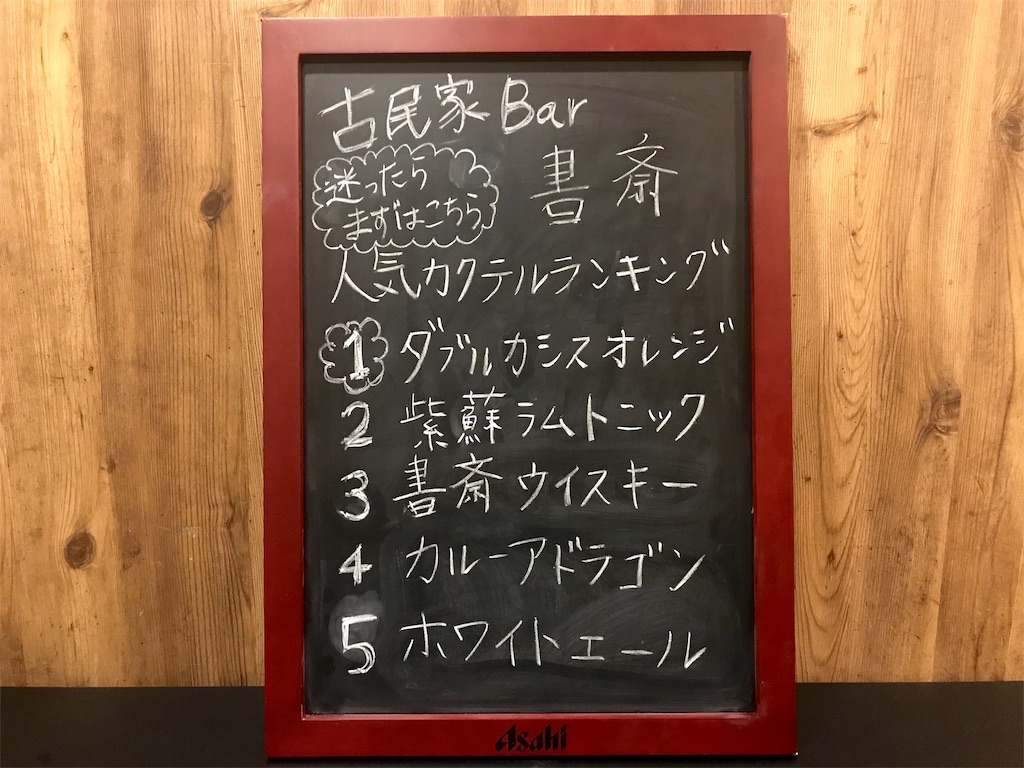 古民家Bar
書斎
迷ったら
まずはこちら
人気カクテルランキング
1 ダブルカシスオレンジ
2 紫蘇ラムトニック
3 書斎ウイスキー
4 カルーアドラゴン
5 ホワイトエール
Asahi